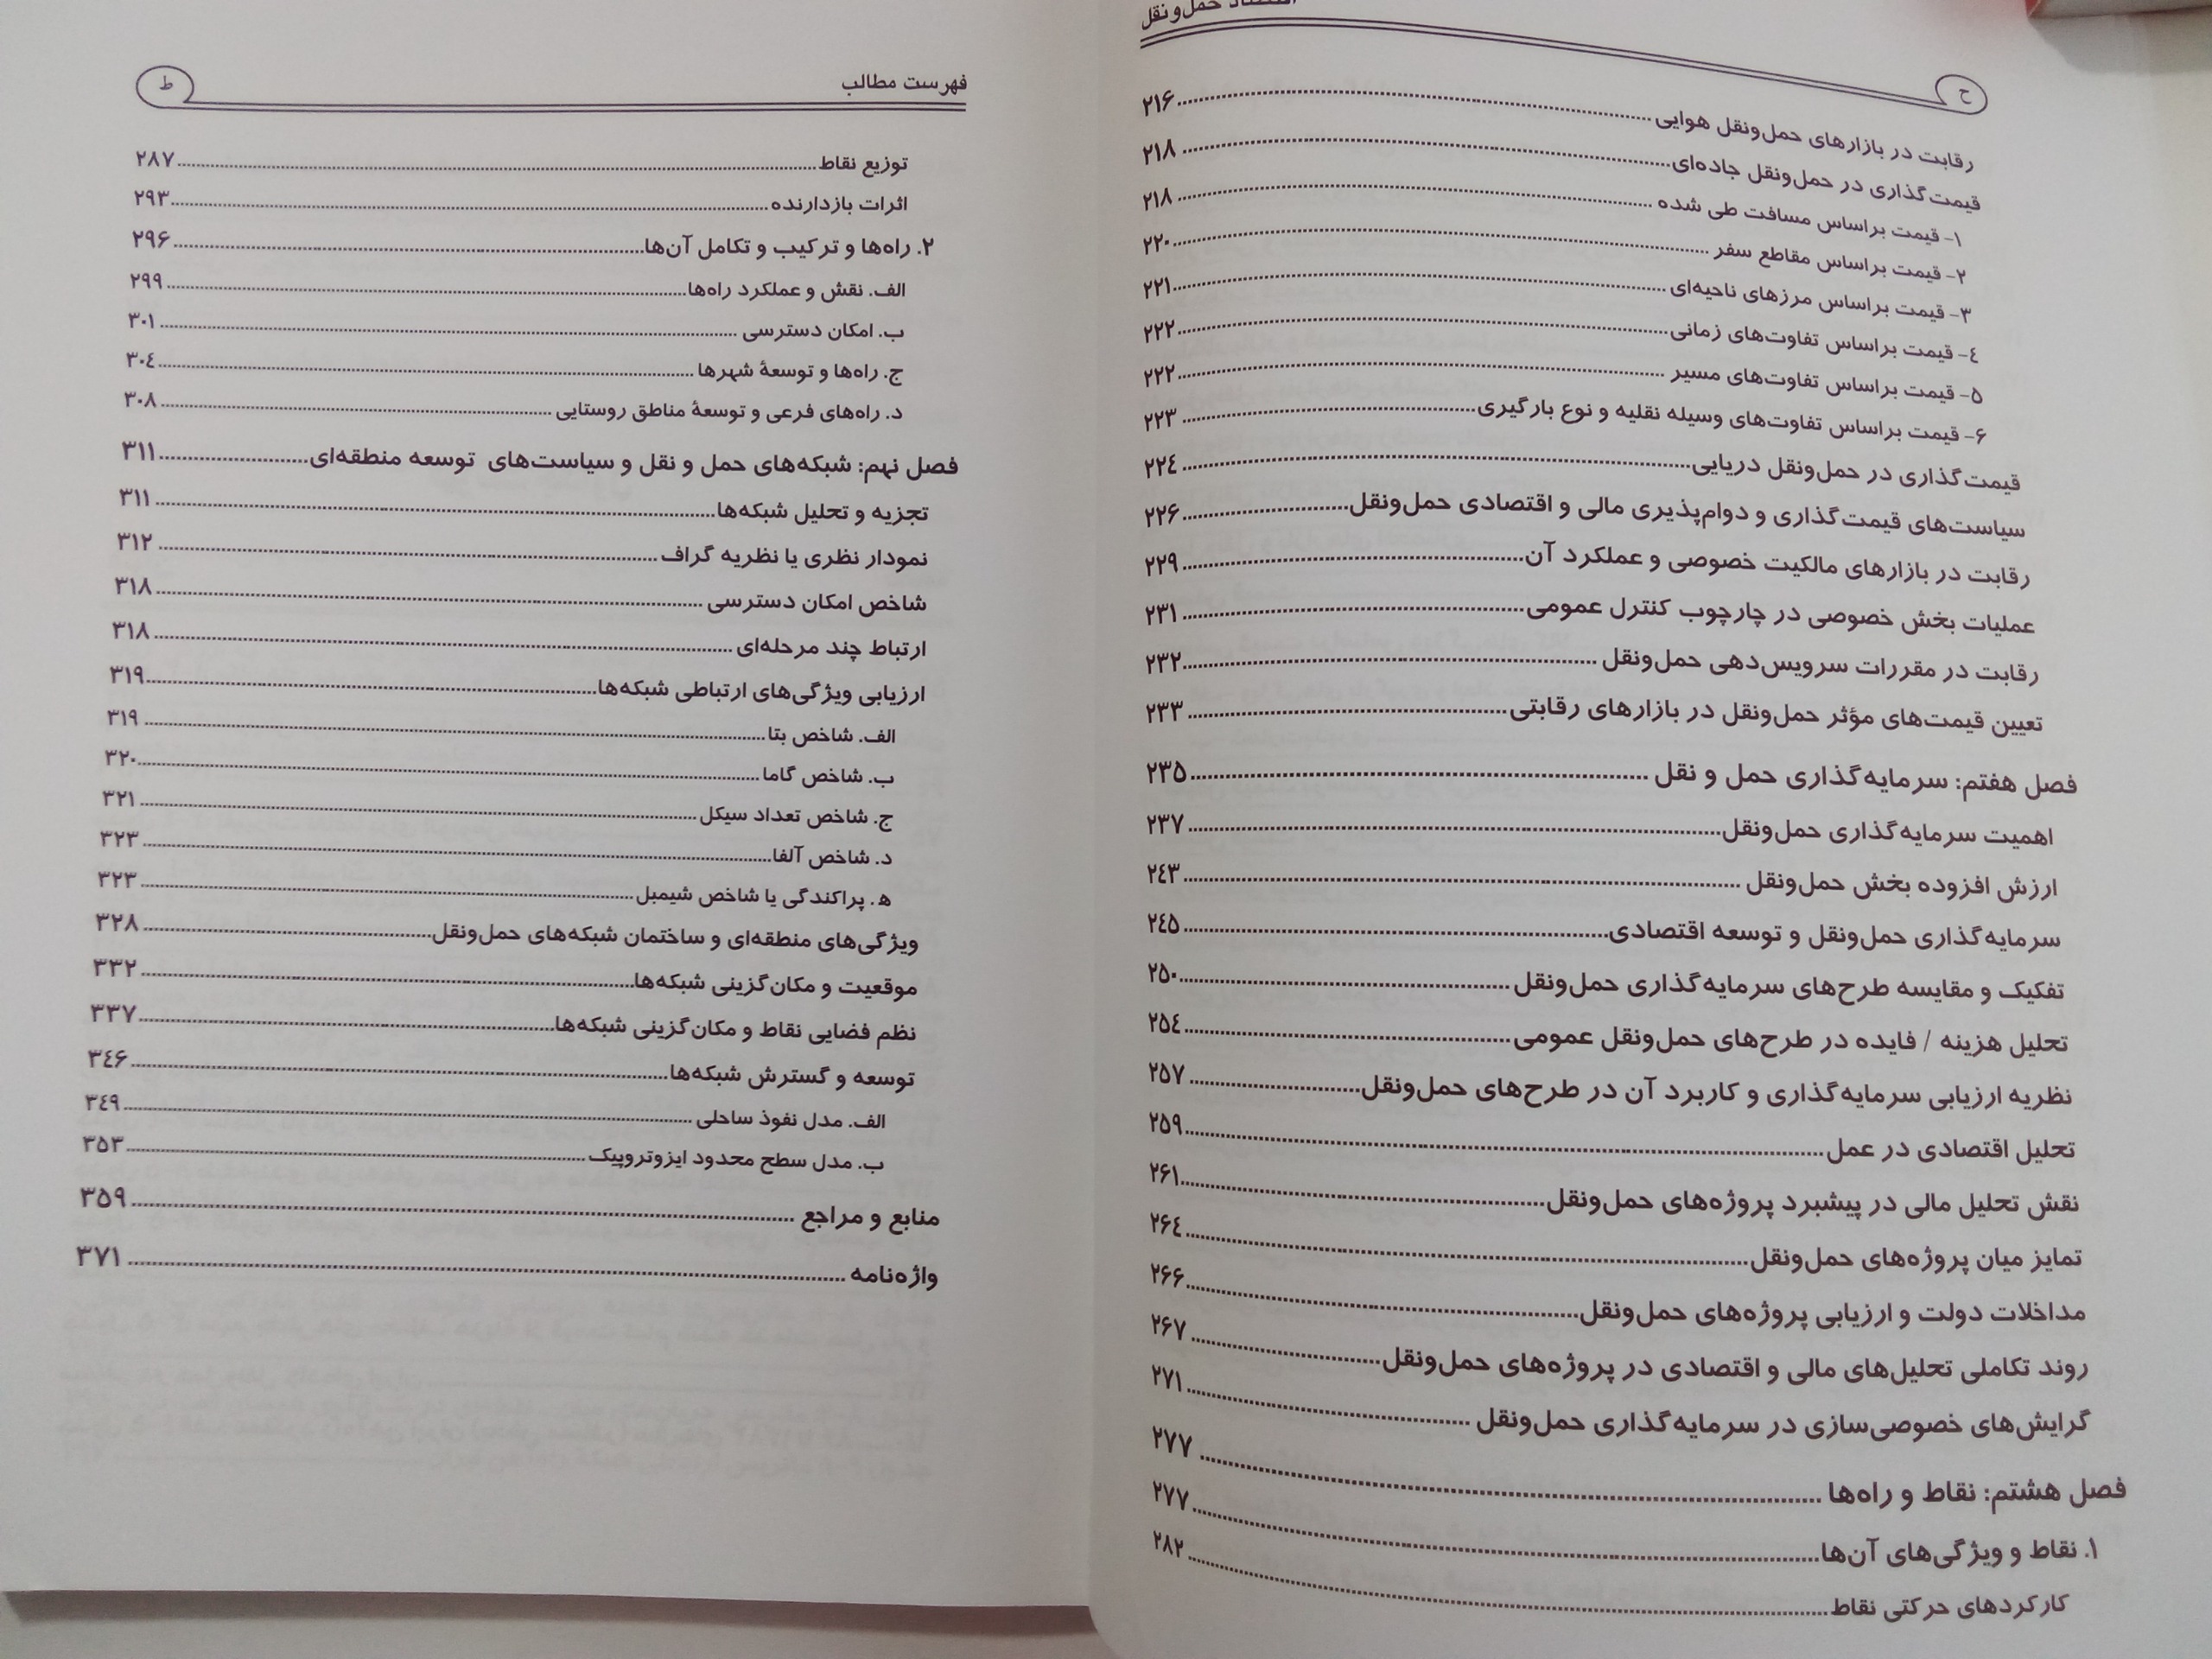 حمل‌ونقل
ح
رقابت در بازارهای حمل‌ونقل هوایی ۲۱۶
قیمت‌گذاری در حمل‌ونقل جاده‌ای ۲۱۸
۱- قیمت براساس مسافت طی شده ۲۱۸
۲- قیمت براساس مقاطع سفر ۲۲۰
۳- قیمت براساس مرزهای ناحیه‌ای ۲۲۱
٤- قیمت براساس تفاوت‌های زمانی ۲۲۲
۵- قیمت براساس تفاوت‌های مسیر ۲۲۲
۶- قیمت براساس تفاوت‌های وسیله نقلیه و نوع بارگیری ۲۲۳
قیمت‌گذاری در حمل‌ونقل دریایی ۲۲٤
سیاست‌های قیمت‌گذاری و دوام‌پذیری مالی و اقتصادی حمل‌ونقل ۲۲۶
رقابت در بازارهای مالکیت خصوصی و عملکرد آن ۲۲۹
عملیات بخش خصوصی در چارچوب کنترل عمومی ۲۳۱
رقابت در مقررات سرویس‌دهی حمل‌ونقل ۲۳۲
تعیین قیمت‌های مؤثر حمل‌ونقل در بازارهای رقابتی ۲۳۳
فصل هفتم: سرمایه‌گذاری حمل و نقل ۲۳۵
اهمیت سرمایه‌گذاری حمل‌ونقل ۲۳۷
ارزش افزوده بخش حمل‌ونقل ۲٤۳
سرمایه‌گذاری حمل‌ونقل و توسعه اقتصادی ۲٤۵
تفکیک و مقایسه طرح‌های سرمایه‌گذاری حمل‌ونقل ۲۵۰
تحلیل هزینه / فایده در طرح‌های حمل‌ونقل عمومی ۲۵٤
نظریه ارزیابی سرمایه‌گذاری و کاربرد آن در طرح‌های حمل‌ونقل ۲۵۷
تحلیل اقتصادی در عمل ۲۵۹
نقش تحلیل مالی در پیشبرد پروژه‌های حمل‌ونقل ۲۶۱
تمایز میان پروژه‌های حمل‌ونقل ۲۶٤
مداخلات دولت و ارزیابی پروژه‌های حمل‌ونقل ۲۶۶
روند تکاملی تحلیل‌های مالی و اقتصادی در پروژه‌های حمل‌ونقل ۲۶۷
گرایش‌های خصوصی‌سازی در سرمایه‌گذاری حمل‌ونقل ۲۷۱
فصل هشتم: نقاط و راه‌ها ۲۷۷
۱. نقاط و ویژگی‌های آن‌ها ۲۷۷
کارکردهای حرکتی نقاط ۲۸۲
فهرست مطالب
ط
توزیع نقاط ۲۸۷
اثرات بازدارنده ۲۹۳
۲. راه‌ها و ترکیب و تکامل آن‌ها ۲۹۶
الف. نقش و عملکرد راه‌ها ۲۹۹
ب. امکان دسترسی ۳۰۱
ج. راه‌ها و توسعهٔ شهرها ۳۰٤
د. راه‌های فرعی و توسعهٔ مناطق روستایی ۳۰۸
فصل نهم: شبکه‌های حمل و نقل و سیاست‌های توسعه منطقه‌ای ۳۱۱
تجزیه و تحلیل شبکه‌ها ۳۱۱
نمودار نظری یا نظریه گراف ۳۱۲
شاخص امکان دسترسی ۳۱۸
ارتباط چند مرحله‌ای ۳۱۸
ارزیابی ویژگی‌های ارتباطی شبکه‌ها ۳۱۹
الف. شاخص بتا ۳۱۹
ب. شاخص گاما ۳۲۰
ج. شاخص تعداد سیکل ۳۲۱
د. شاخص آلفا ۳۲۳
ه. پراکندگی یا شاخص شیمبل ۳۲۳
ویژگی‌های منطقه‌ای و ساختمان شبکه‌های حمل‌ونقل ۳۲۸
موقعیت و مکان‌گزینی شبکه‌ها ۳۳۲
نظم فضایی نقاط و مکان‌گزینی شبکه‌ها ۳۳۷
توسعه و گسترش شبکه‌ها ۳٤۶
الف. مدل نفوذ ساحلی ۳٤۹
ب. مدل سطح محدود ایزوتروپیک ۳۵۳
منابع و مراجع ۳۵۹
واژه‌نامه ۳۷۱